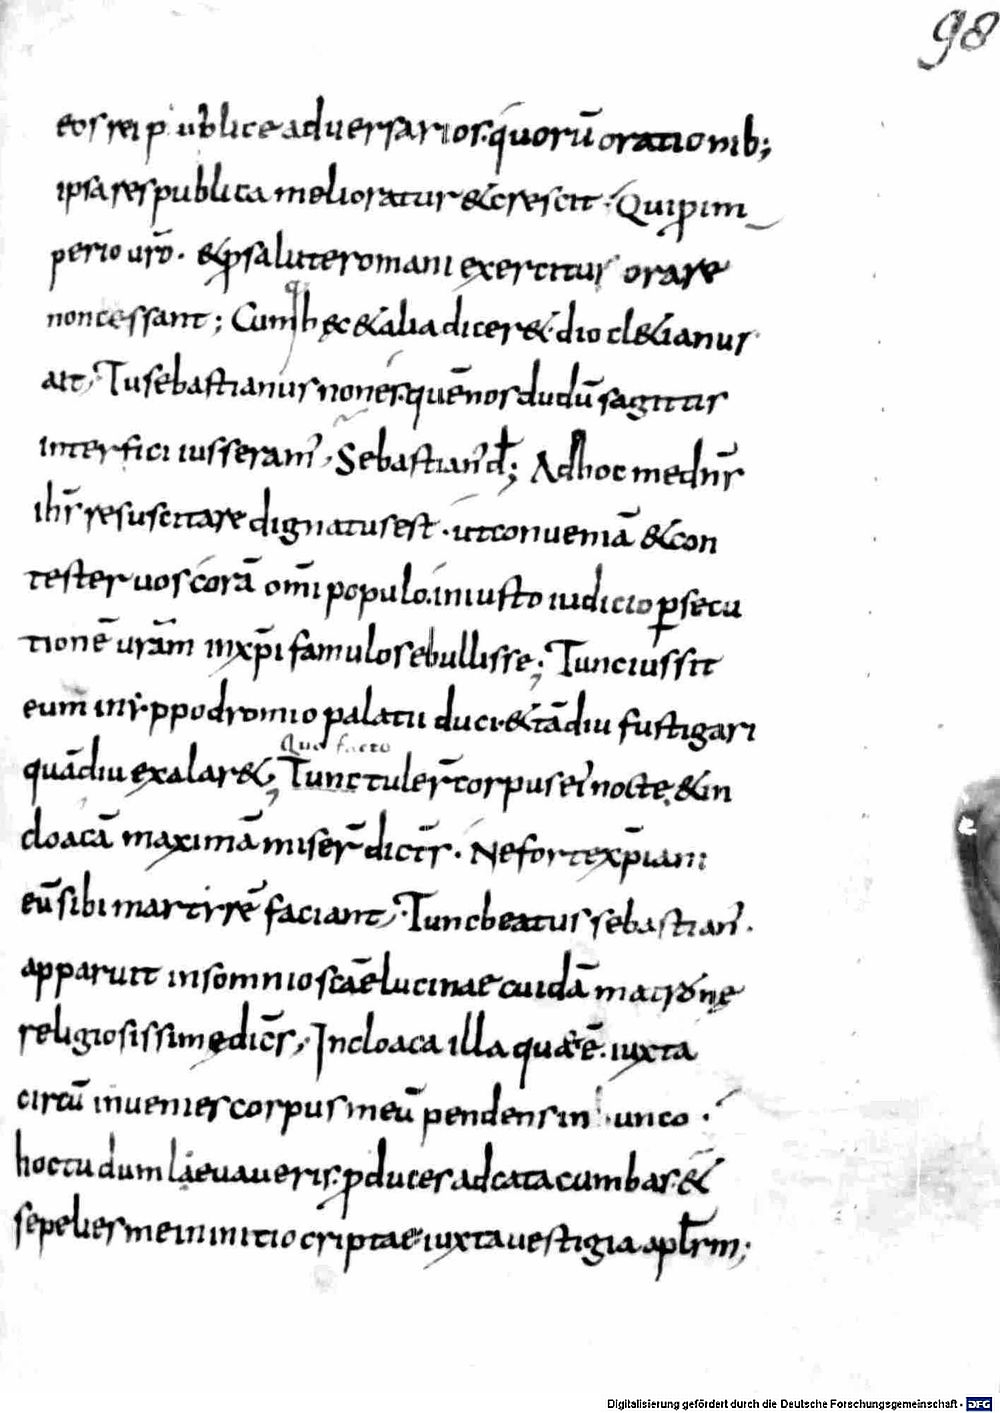 98
eos rei publice aduersarios. quorū orationib;
ipsa respublica melioratur & crescit. Qui p im
perio uro. & p salute romani exercitus orare
non cessant; Cumq hęc & alia diceret. dio cletianus
ait, Tu sebastianus non es. quē nos dudū sagittis
interfici iusseram, Sebastian' d; Ad hoc me dnr
ihr resuscitare dignatus est. ut conueniā & con
tester uos corā omi populo. iniusto iudicio psecu
tionē urām in xpi famulos ebullisse; Tunc iussit
eum in yppodromio palatii duci. & tādiu fustigari
Quo facto
quādiu exalaret; Tunc tuler corpus ei' nocte, & in
cloacā maximā miser dictr. Ne forte xpiani
eū sibi martirē faciant, Tunc beatus sebastian'.
apparuit in somnio scae lucinae cuidā matrone
religiosissimę dics, In cloaca illa quae ē. iuxta
circū inuenies corpus meū pendens in unco.
hoc tu dum laeuaueris. pduces ad catacumbas. &
sepelies me in initio criptae iuxta uestigia apłrm;
Digitalisierung gefördert durch die Deutsche Forschungsgemeinschaft - DFG